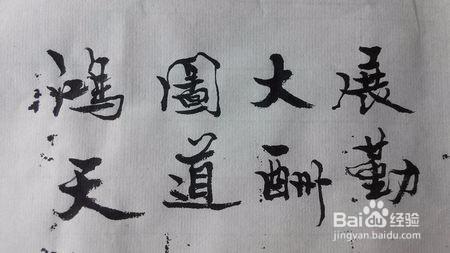 鴻圖大展
天道酬勤
Baidu经验
jingyan.baidu.com